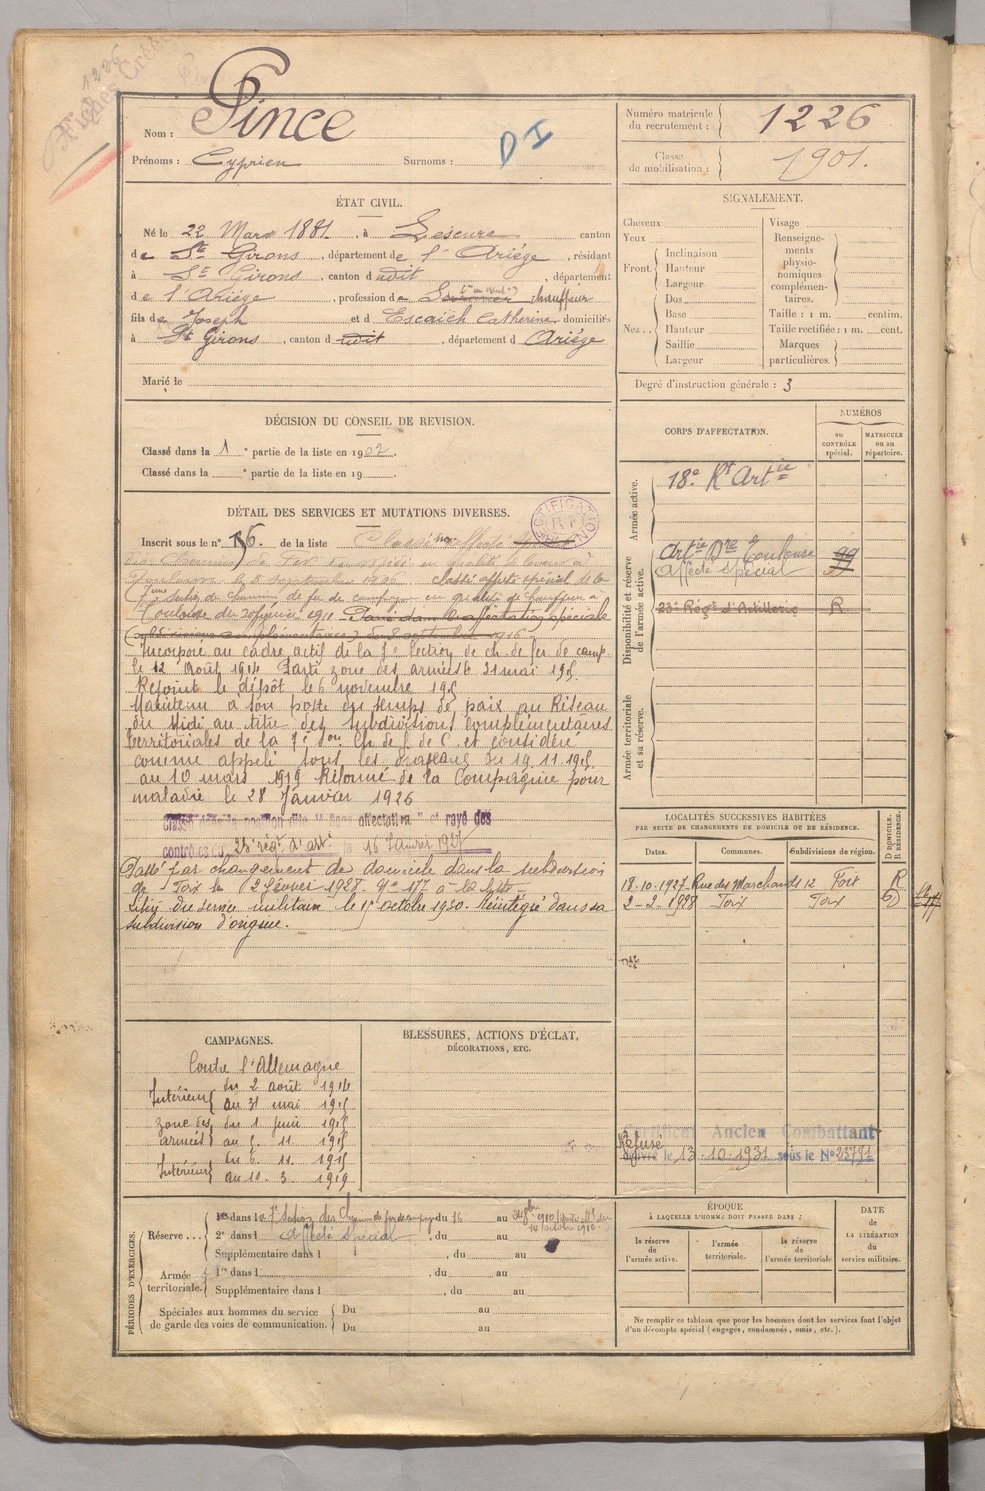 1226
Nom : Pince
Prénoms : Cyprien Surnoms :
D I
Numéro matricule du recrutement : 1226
Classe de mobilisation : 1901.
ÉTAT CIVIL.
Né le 22 Mars 1881, à Lescure canton
de St Girons, département de l'Ariége, résidant
à St Girons, canton dudit, département
de l'Ariége, profession de chauffeur
fils de Joseph et d Escaich Catherine domiciliés
à St Girons, canton dudit, département d Ariége
Marié le
SIGNALEMENT.
Cheveux
Yeux
Front.
Inclinaison
Hauteur
Largeur
Nez..
Dos
Base
Hauteur
Saillie
Largeur
Visage
Renseignements physionomiques complémentaires.
Taille : 1 m. centim.
Taille rectifiée : 1 m. cent.
Marques particulières.
Degré d'instruction générale : 3
DÉCISION DU CONSEIL DE REVISION.
Classé dans la 1e partie de la liste en 1902.
Classé dans la e partie de la liste en 19
CORPS D'AFFECTATION.
NUMÉROS
au CONTRÔLE spécial.
MATRICULE ou au répertoire.
Armée active.
18e Rt Artie
Disponibilité et réserve de l'armée active.
Artie Dre Toulouse 99
Affecté Spécial
23e Régt d'Artillerie R
Armée territoriale et sa réserve.
DÉTAIL DES SERVICES ET MUTATIONS DIVERSES.
Inscrit sous le n° 76. de la liste Classé non affecté
des Chemins de Fer du Midi en qualité de laveur à
Toulouse le 5 septembre 1906 classé affecté spécial de la
7eme Section de chemins de fer de campagne en qualité de chauffeur à
Toulouse du 20 février 1911 Passé dans l'affectation spéciale
(subdivisions complémentaires) du 8 septembre 1916
Incorporé au cadre actif de la 7e Section de ch. de fer de camp.
le 12 Août 1914 Parti zone des armées le 31 mai 1915
Rejoint le dépôt le 6 novembre 1915
Maintenu à son poste du temps de paix au Réseau
du Midi au titre des subdivisions complémentaires
territoriales de la 7e Son Ch. de f. de C. et considéré
comme appelé sous les drapeaux du 19.11.1915
au 10 mars 1919 Réformé de la Compagnie pour
maladie le 28 Janvier 1926
Classé dans la position dite "Sans affectation" et rayé des
contrôles du 23e régt d'artie le 16 Janvier 1927
Passé par changement de domicile dans la subdivision
de Foix le 2 février 1928. N° 177 à la liste
Libéré du service militaire le 15 octobre 1930. Réintégré dans sa
subdivision d'origine.
LOCALITÉS SUCCESSIVES HABITÉES
PAR SUITE DE CHANGEMENTS DE DOMICILE OU DE RÉSIDENCE.
Dates. Communes. Subdivisions de région. D DOMICILE. R RÉSIDENCE.
18.10.1927 Rue des Marchands 12 Foix R
2-2-1928 Foix Foix D
CAMPAGNES.
Contre l'Allemagne
Intérieur du 2 août 1914
au 31 mai 1915
zone des armées du 1 juin 1915
au 5 11 1915
Intérieur du 6 11 1915
au 10 3 1919
BLESSURES, ACTIONS D'ÉCLAT,
DÉCORATIONS, ETC.
Certificat Ancien Combattant
Refusé
délivré le 13-10-1931 sous le N° 23791
PÉRIODES D'EXERCICES.
Réserve...
1re dans la 7e Section des Chemins de fer de campagne du 16 au
2e dans l Affecté Spécial, du au
Supplémentaire dans l, du au
Armée territoriale.
1re dans l, du au
Supplémentaire dans l, du au
Spéciales aux hommes du service de garde des voies de communication.
Du au
Du au
ÉPOQUE
À LAQUELLE L'HOMME DOIT PASSER DANS :
la réserve de l'armée active.
l'armée territoriale.
la réserve de l'armée territoriale
DATE de LA LIBÉRATION du service militaire.
Ne remplir ce tableau que pour les hommes dont les services font l'objet
d'un décompte spécial (engagés, condamnés, omis, etc.).